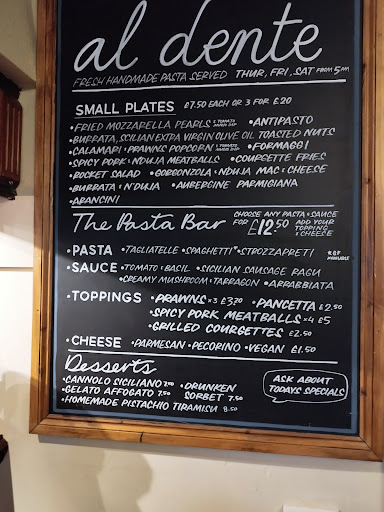 al dente
FRESH HANDMADE PASTA SERVED THUR, FRI, SAT FROM 5PM
SMALL PLATES £7.50 EACH OR 3 FOR £20
•FRIED MOZZARELLA PEARLS & TOMATO •ANTIPASTO
•BURRATA, SCILIAN EXTRA VIRGIN OLIVE OIL TOASTED NUTS
•CALAMARI & PRAWNS POPCORN & TOMATO •FORMAGGI
•SPICY PORK & NDUJA MEATBALLS •COURGETTE FRIES
•ROCKET SALAD •GORGONZOLA & NDUJA MAC & CHEESE
•BURRATA & N'DUJA •AUBERGINE PARMIGIANA
•ARANCINI
The Pasta Bar CHOOSE ANY PASTA & SAUCE
FOR £12.50 ADD YOUR
TOPPING
& CHEESE
•PASTA •TAGLIATELLE •SPAGHETTI* •STROZZAPRETI *GF
AVAILABLE
•SAUCE •TOMATO & BASIL •SICILIAN SAUSAGE RAGU
•CREAMY MUSHROOM & TARRAGON •ARRABBIATA
•TOPPINGS •PRAWNS x3 £3.70 •PANCETTA £2.50
•SPICY PORK MEATBALLS x4 £5
•GRILLED COURGETTES £2.50
•CHEESE •PARMESAN •PECORINO •VEGAN £1.50
Desserts
•CANNOLO SICILIANO 7.00 •DRUNKEN
•GELATO AFFOGATO 7.50 SORBET 7.50
•HOMEMADE PISTACHIO TIRAMISU 8.50
ASK ABOUT
TODAYS SPECIALS